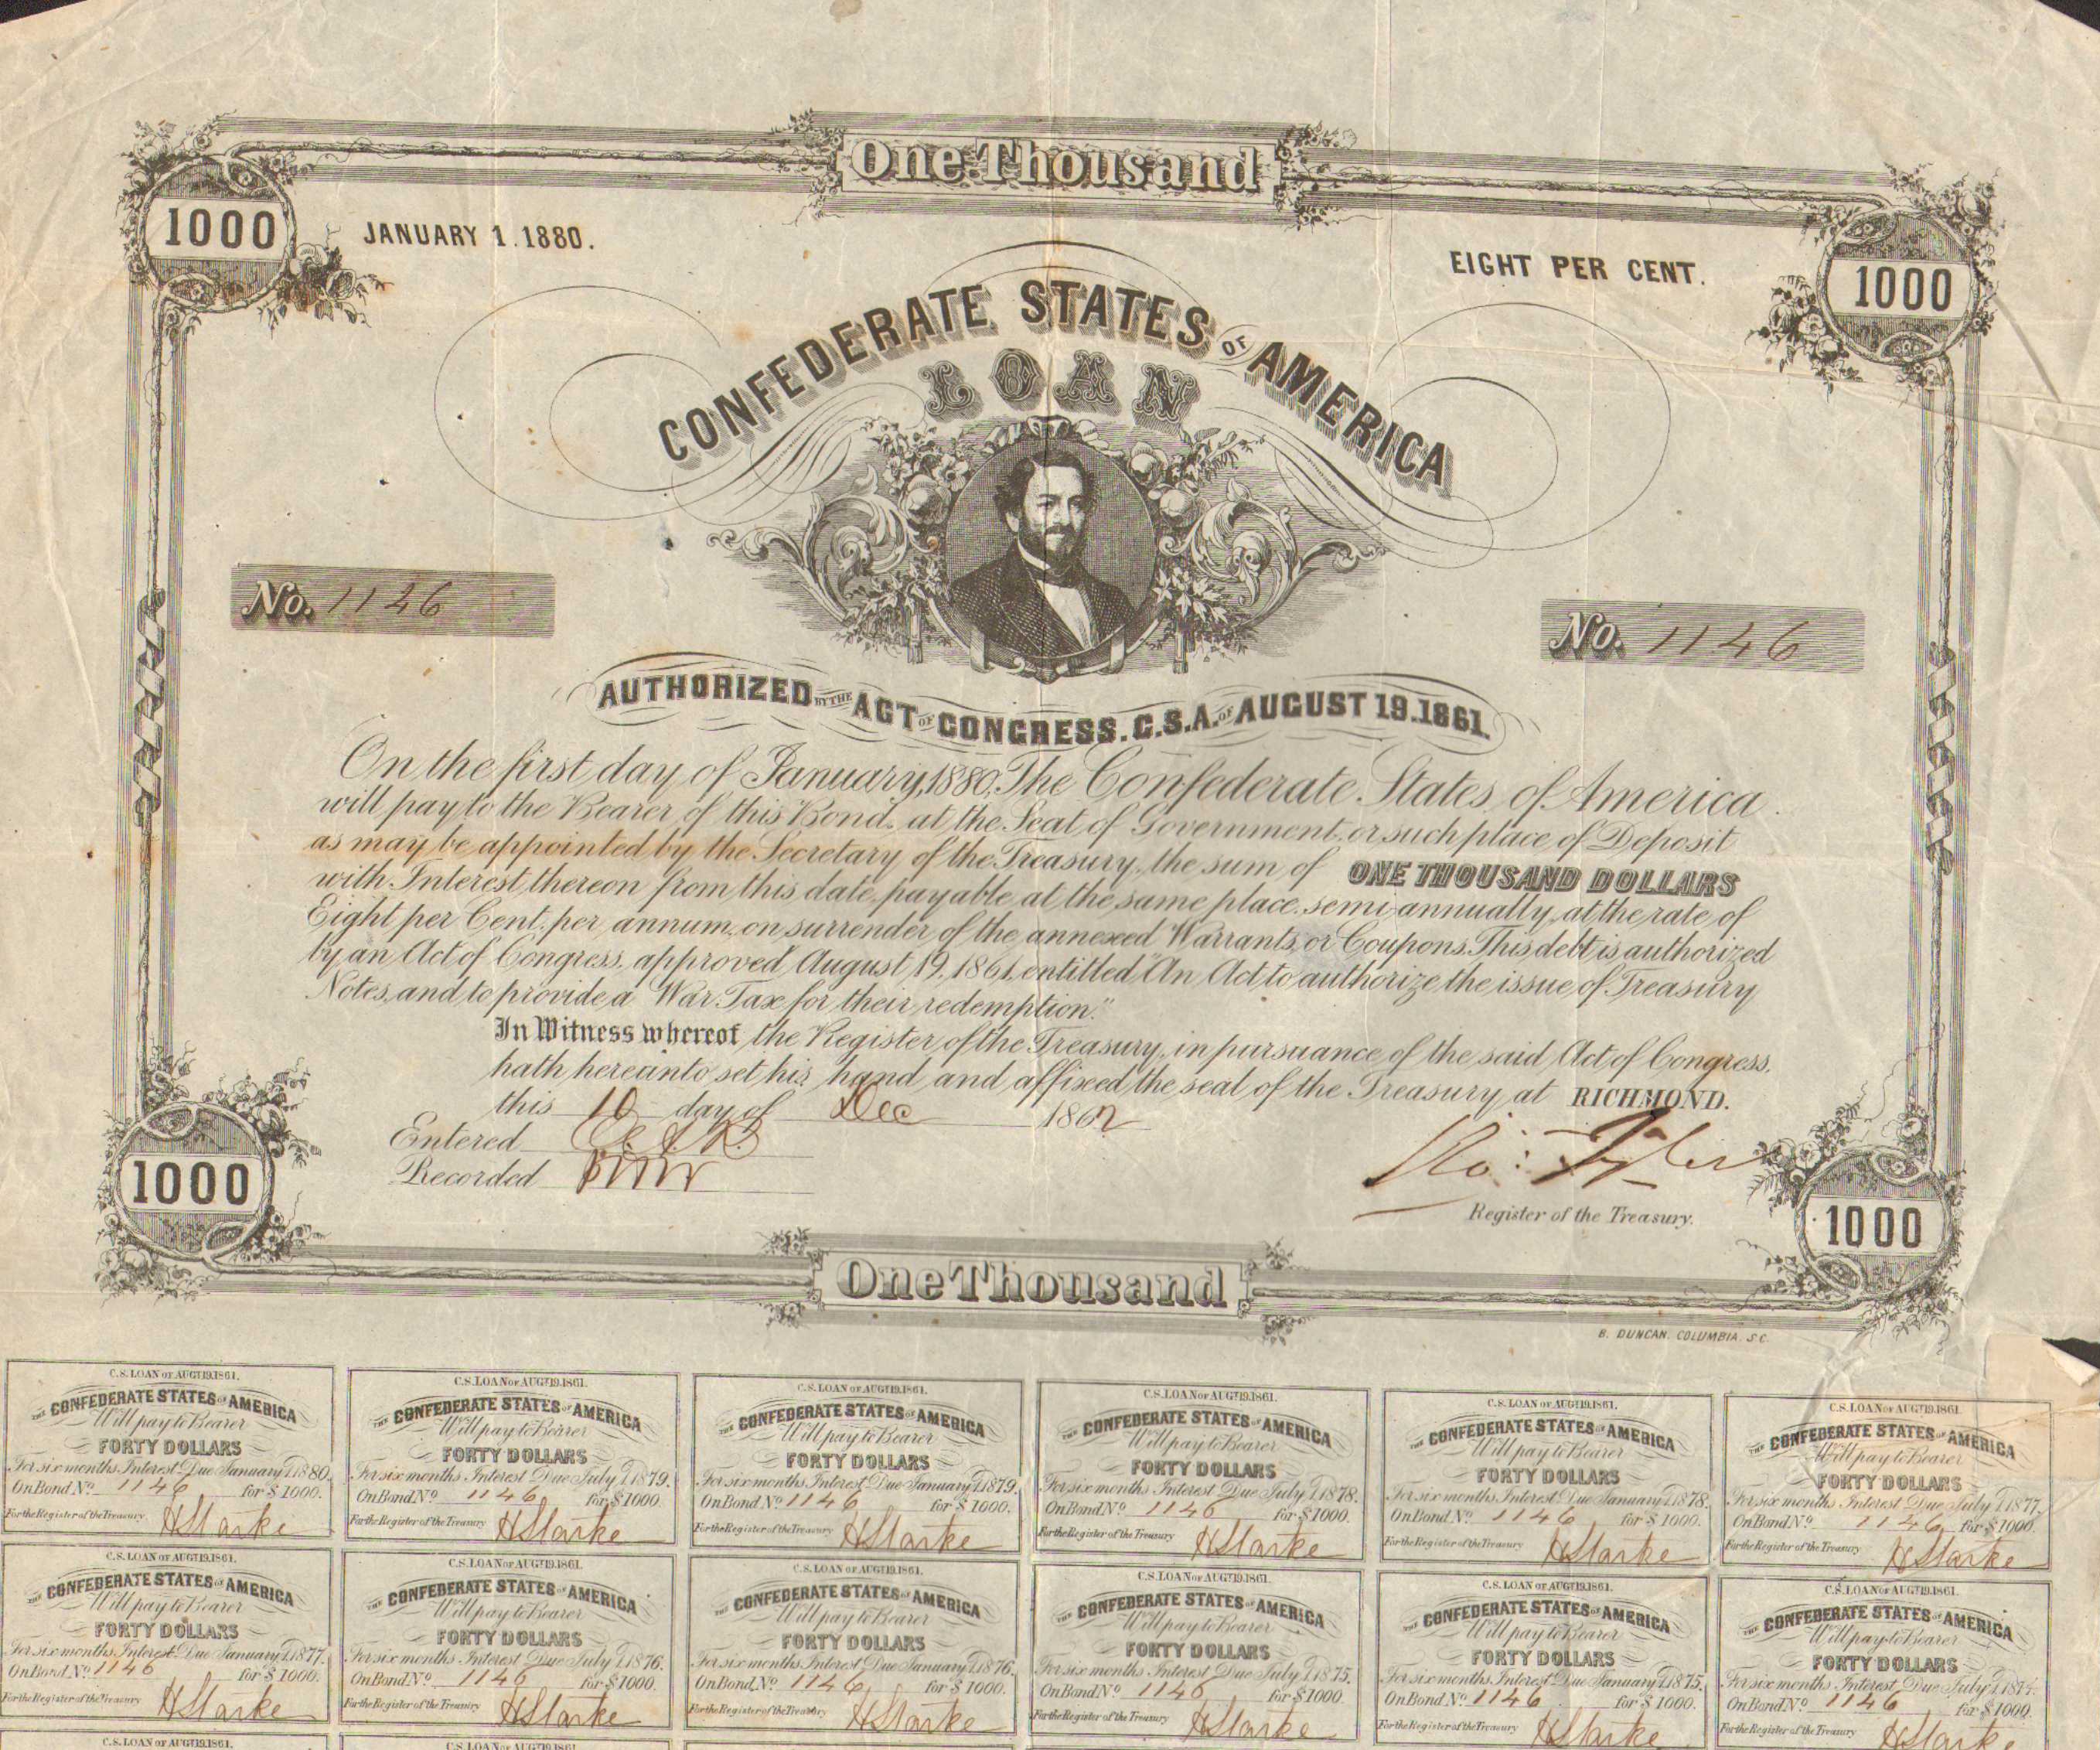 One Thousand
1000
JANUARY 1. 1880.
EIGHT PER CENT.
1000
CONFEDERATE STATES OF AMERICA
LOAN
No. 1146
No. 1146
AUTHORIZED BY THE ACT OF CONGRESS. C.S.A. OF AUGUST 19. 1861.
On the first day of January, 1880. The Confederate States of America
will pay to the Bearer of this Bond, at the Seat of Government, or such place of Deposit
as may be appointed by the Secretary of the Treasury, the sum of ONE THOUSAND DOLLARS
with Interest thereon from this date, payable, at the same place, semi-annually, at the rate of
Eight per Cent. per annum, on surrender of the annexed Warrants, or Coupons. This debt is authorized
by an Act of Congress, approved August 19, 1861, entitled "An Act to authorize the issue of Treasury
Notes, and to provide a War Tax for their redemption."
In Witness whereof the Register of the Treasury, in pursuance of the said Act of Congress,
hath hereunto set his hand and affixed the seal of the Treasury, at RICHMOND.
this 10 day of Dec 1862
Entered
Recorded
Ro: Tyler
Register of the Treasury.
1000
1000
One Thousand
B. DUNCAN. COLUMBIA. S.C.
C.S. LOAN OF AUGT 19. 1861.
THE CONFEDERATE STATES OF AMERICA
Will pay to Bearer
FORTY DOLLARS
For six months Interest Due January 1. 1880.
On Bond No. 1146 for $1000.
For the Register of the Treasury HStarke
C.S. LOAN OF AUGT 19. 1861.
THE CONFEDERATE STATES OF AMERICA
Will pay to Bearer
FORTY DOLLARS
For six months Interest Due July 1. 1879.
On Bond No. 1146 for $1000.
For the Register of the Treasury HStarke
C.S. LOAN OF AUGT 19. 1861.
THE CONFEDERATE STATES OF AMERICA
Will pay to Bearer
FORTY DOLLARS
For six months Interest Due January 1. 1879.
On Bond No. 1146 for $1000.
For the Register of the Treasury HStarke
C.S. LOAN OF AUGT 19. 1861.
THE CONFEDERATE STATES OF AMERICA
Will pay to Bearer
FORTY DOLLARS
For six months Interest Due July 1. 1878.
On Bond No. 1146 for $1000.
For the Register of the Treasury HStarke
C.S. LOAN OF AUGT 19. 1861.
THE CONFEDERATE STATES OF AMERICA
Will pay to Bearer
FORTY DOLLARS
For six months Interest Due January 1. 1878.
On Bond No. 1146 for $1000.
For the Register of the Treasury HStarke
C.S. LOAN OF AUGT 19. 1861.
THE CONFEDERATE STATES OF AMERICA
Will pay to Bearer
FORTY DOLLARS
For six months Interest Due July 1. 1877.
On Bond No. 1146 for $1000.
For the Register of the Treasury HStarke
C.S. LOAN OF AUGT 19. 1861.
THE CONFEDERATE STATES OF AMERICA
Will pay to Bearer
FORTY DOLLARS
For six months Interest Due January 1. 1877.
On Bond No. 1146 for $1000.
For the Register of the Treasury HStarke
C.S. LOAN OF AUGT 19. 1861.
THE CONFEDERATE STATES OF AMERICA
Will pay to Bearer
FORTY DOLLARS
For six months Interest Due July 1. 1876.
On Bond No. 1146 for $1000.
For the Register of the Treasury HStarke
C.S. LOAN OF AUGT 19. 1861.
THE CONFEDERATE STATES OF AMERICA
Will pay to Bearer
FORTY DOLLARS
For six months Interest Due January 1. 1876.
On Bond No. 1146 for $1000.
For the Register of the Treasury HStarke
C.S. LOAN OF AUGT 19. 1861.
THE CONFEDERATE STATES OF AMERICA
Will pay to Bearer
FORTY DOLLARS
For six months Interest Due July 1. 1875.
On Bond No. 1146 for $1000.
For the Register of the Treasury HStarke
C.S. LOAN OF AUGT 19. 1861.
THE CONFEDERATE STATES OF AMERICA
Will pay to Bearer
FORTY DOLLARS
For six months Interest Due January 1. 1875.
On Bond No. 1146 for $1000.
For the Register of the Treasury HStarke
C.S. LOAN OF AUGT 19. 1861.
THE CONFEDERATE STATES OF AMERICA
Will pay to Bearer
FORTY DOLLARS
For six months Interest Due July 1. 1874.
On Bond No. 1146 for $1000.
For the Register of the Treasury HStarke
C.S. LOAN OF AUGT 19. 1861.
C.S. LOAN OF AUGT 19. 1861.